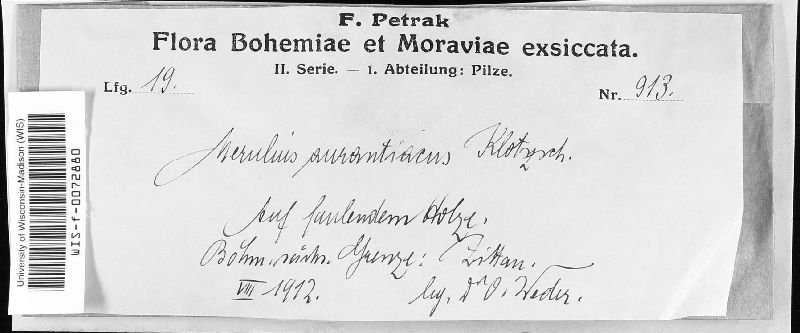 F. Petrak
Flora Bohemiae et Moraviae exsiccata.
II. Serie. — 1. Abteilung: Pilze.
Lfg. 19.
Nr. 913.
Merulius aurantiacus Klotzsch.
Auf faulendem Holze.
Böhm. sächs. Grenze: Zittau.
VIII 1912. leg. Dr O. Weder.
University of Wisconsin-Madison (WIS)
WIS-f-0072880